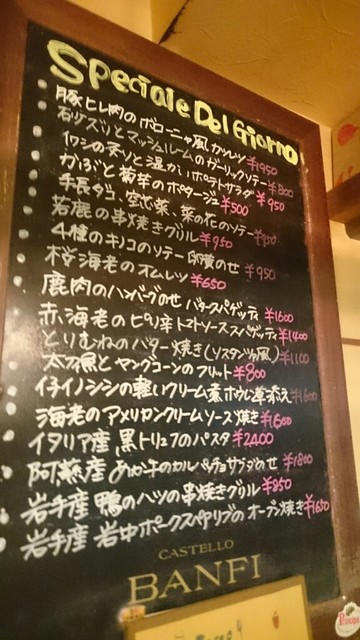 Speciale Del Giorno
豚ヒレ肉のボローニャ風カツレツ ¥1950
石ヅリとマッシュルームのガーリックソテー ¥800
イワシの香りと温かいポテトサラダ ¥950
かぶと菊芋のポタージュ ¥500
手長ダコ、空芯菜、菜の花のソテー
若鹿の串焼きグリル ¥950
4種のキノコのソテー のせ ¥950
桜海老のオムレツ ¥650
鹿肉のハンバーグのせ バタースパゲッティ ¥1600
赤海老のピリ辛トマトソーススパゲッティ ¥1400
とりむねのバター焼き(リスタンツァ風) ¥1100
太刀魚とヤングコーンのフリット ¥800
イノシシの軽いクリーム煮 ホウレン草添え ¥1600
海老のアメリカンクリームソース焼き ¥1600
イタリア産 黒トリュフのパスタ ¥2400
阿蘇産 あか牛のカルパッチョサラダのせ ¥1800
岩手産 鴨のハツの串焼きグリル ¥850
岩手産 岩中ポークスペアリブのオーブン焼き ¥1650
CASTELLO
BANFI